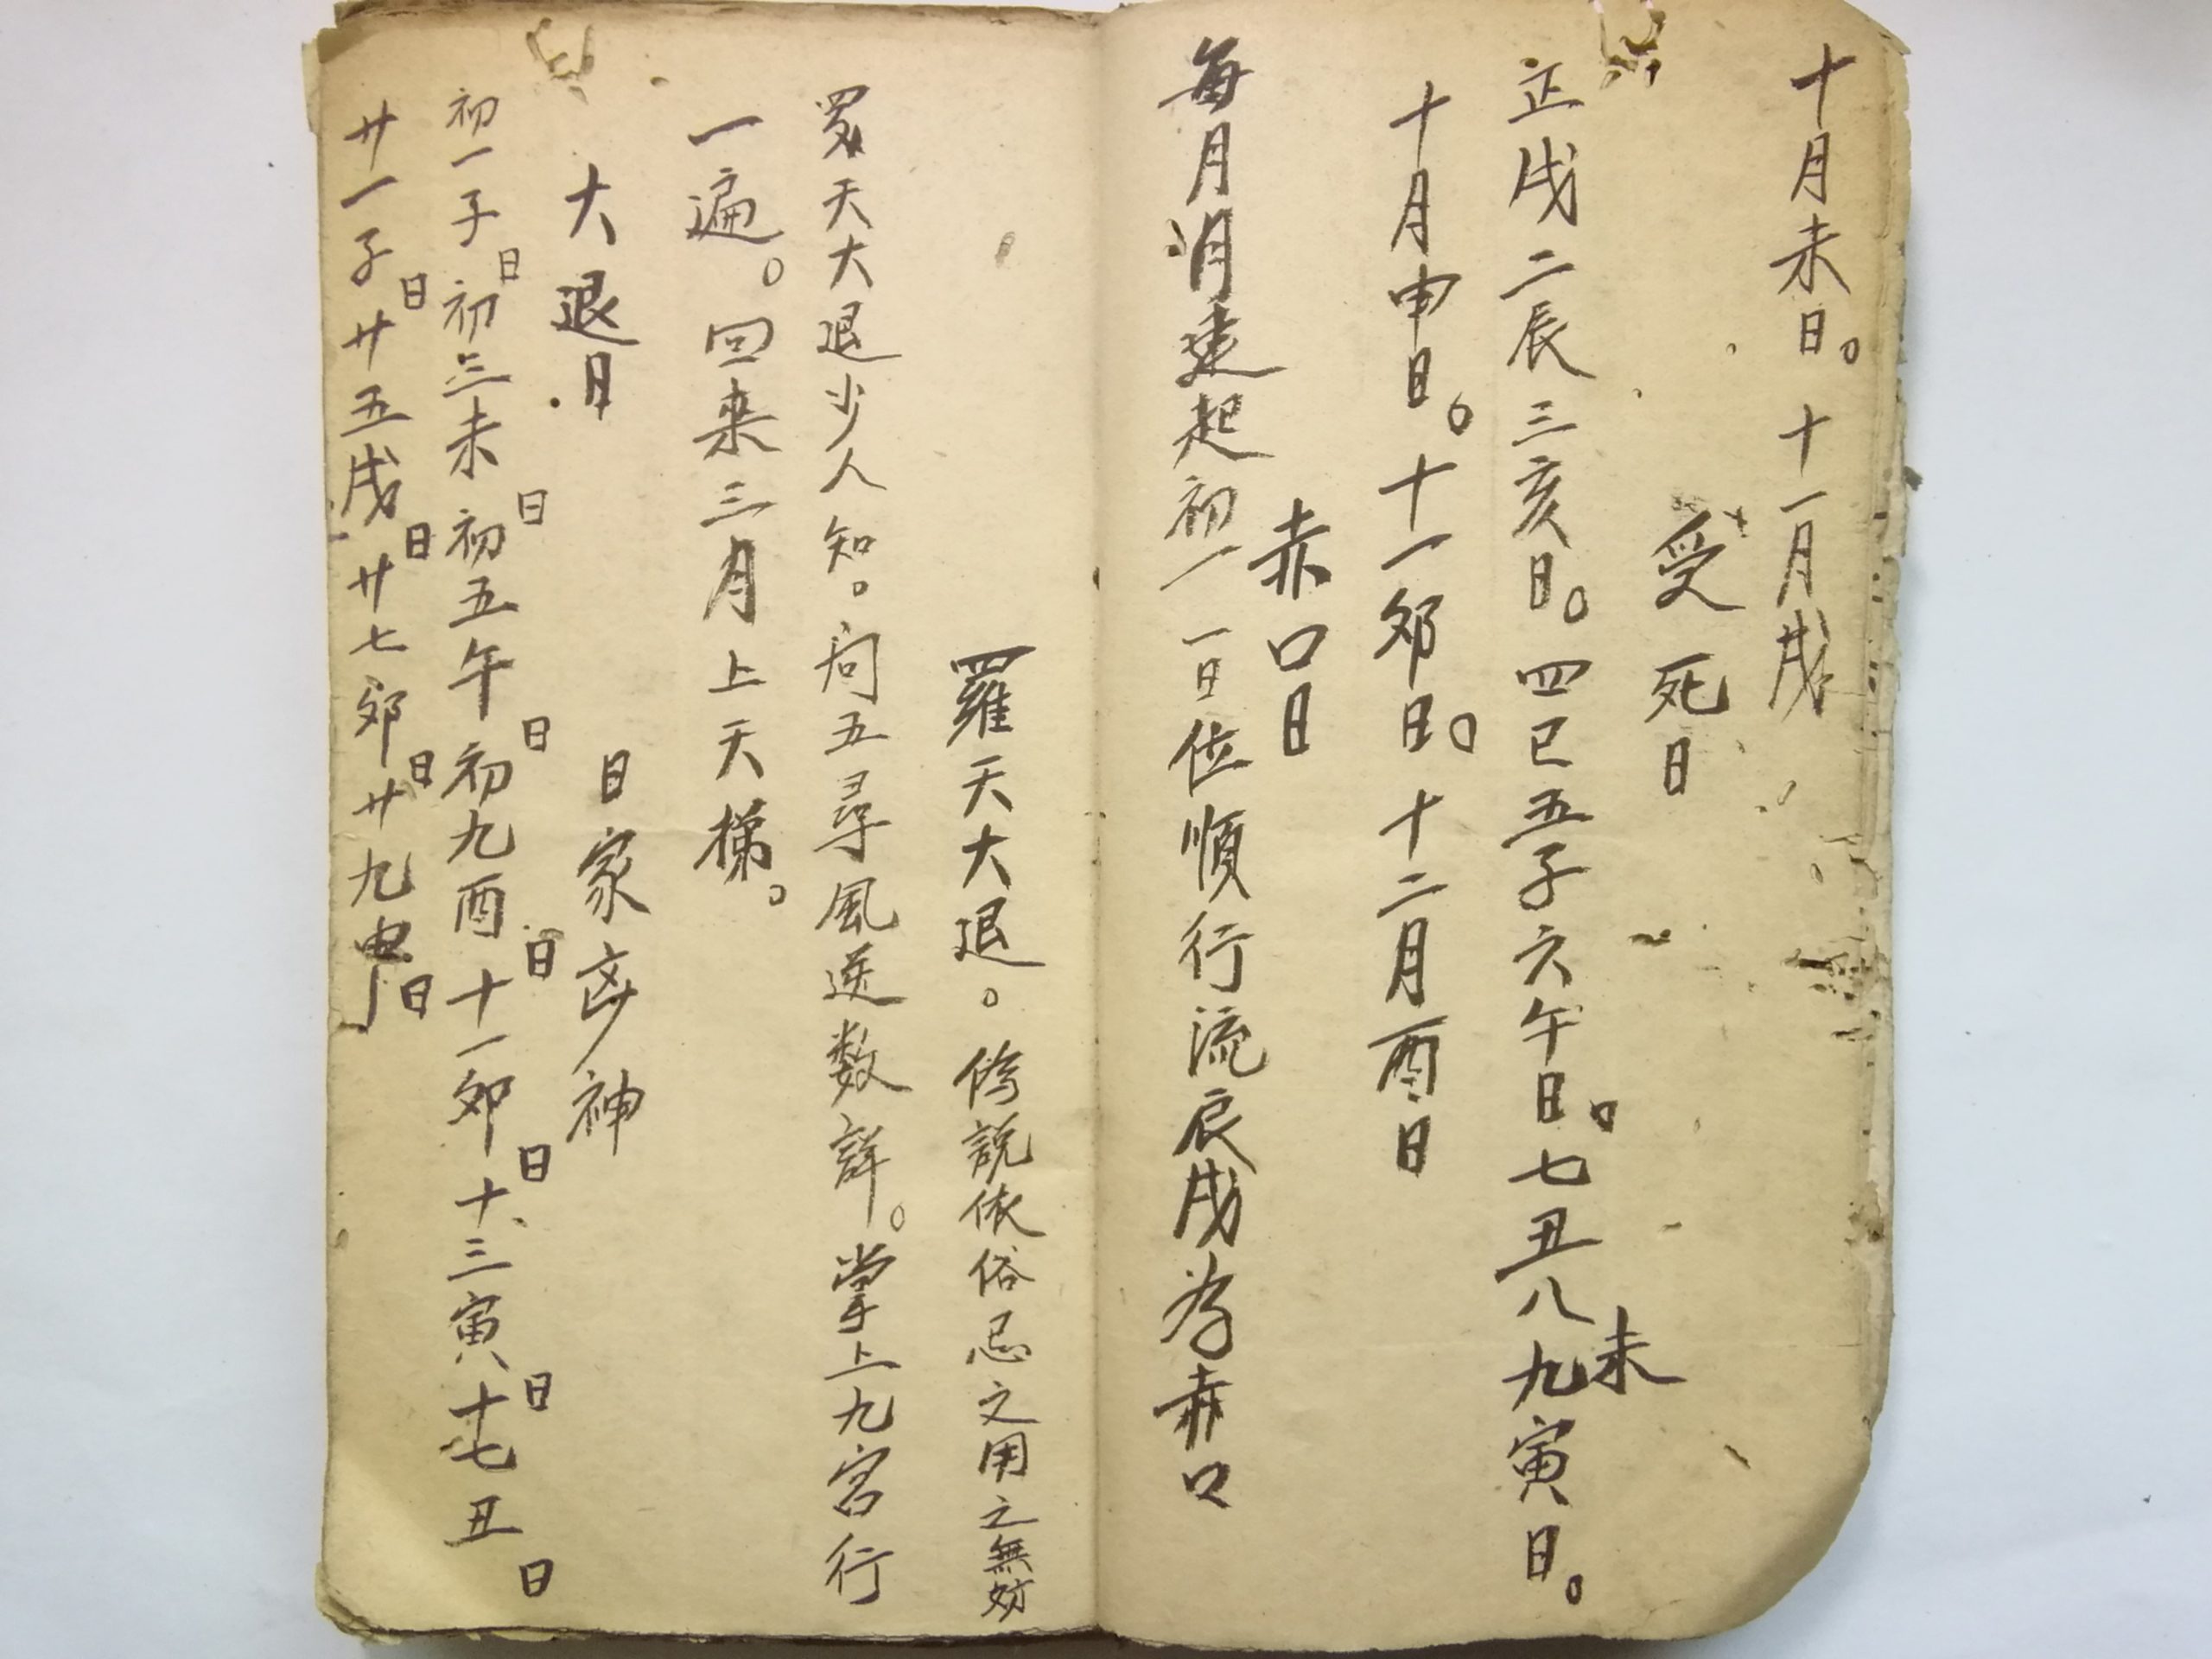 十月未日。十一月戌
受死日
正戌二辰三亥日。四巳五子六午日。七丑八未九寅日。
十月申日。十一卯日。十二月酉日
赤口日
每月月建起初一一日一位順行流辰戌为赤口
羅天大退。俗說依俗忌之用之無妨
罗天大退少人知。向五尋風逆数詳。掌上九宮行
一遍。回来三月上天梯。
大退日
日家凶神
初一子日初三未日初五午日初九酉日十一卯日十三寅日十七丑日
廿一子日廿五戌日廿七卯日廿九申日